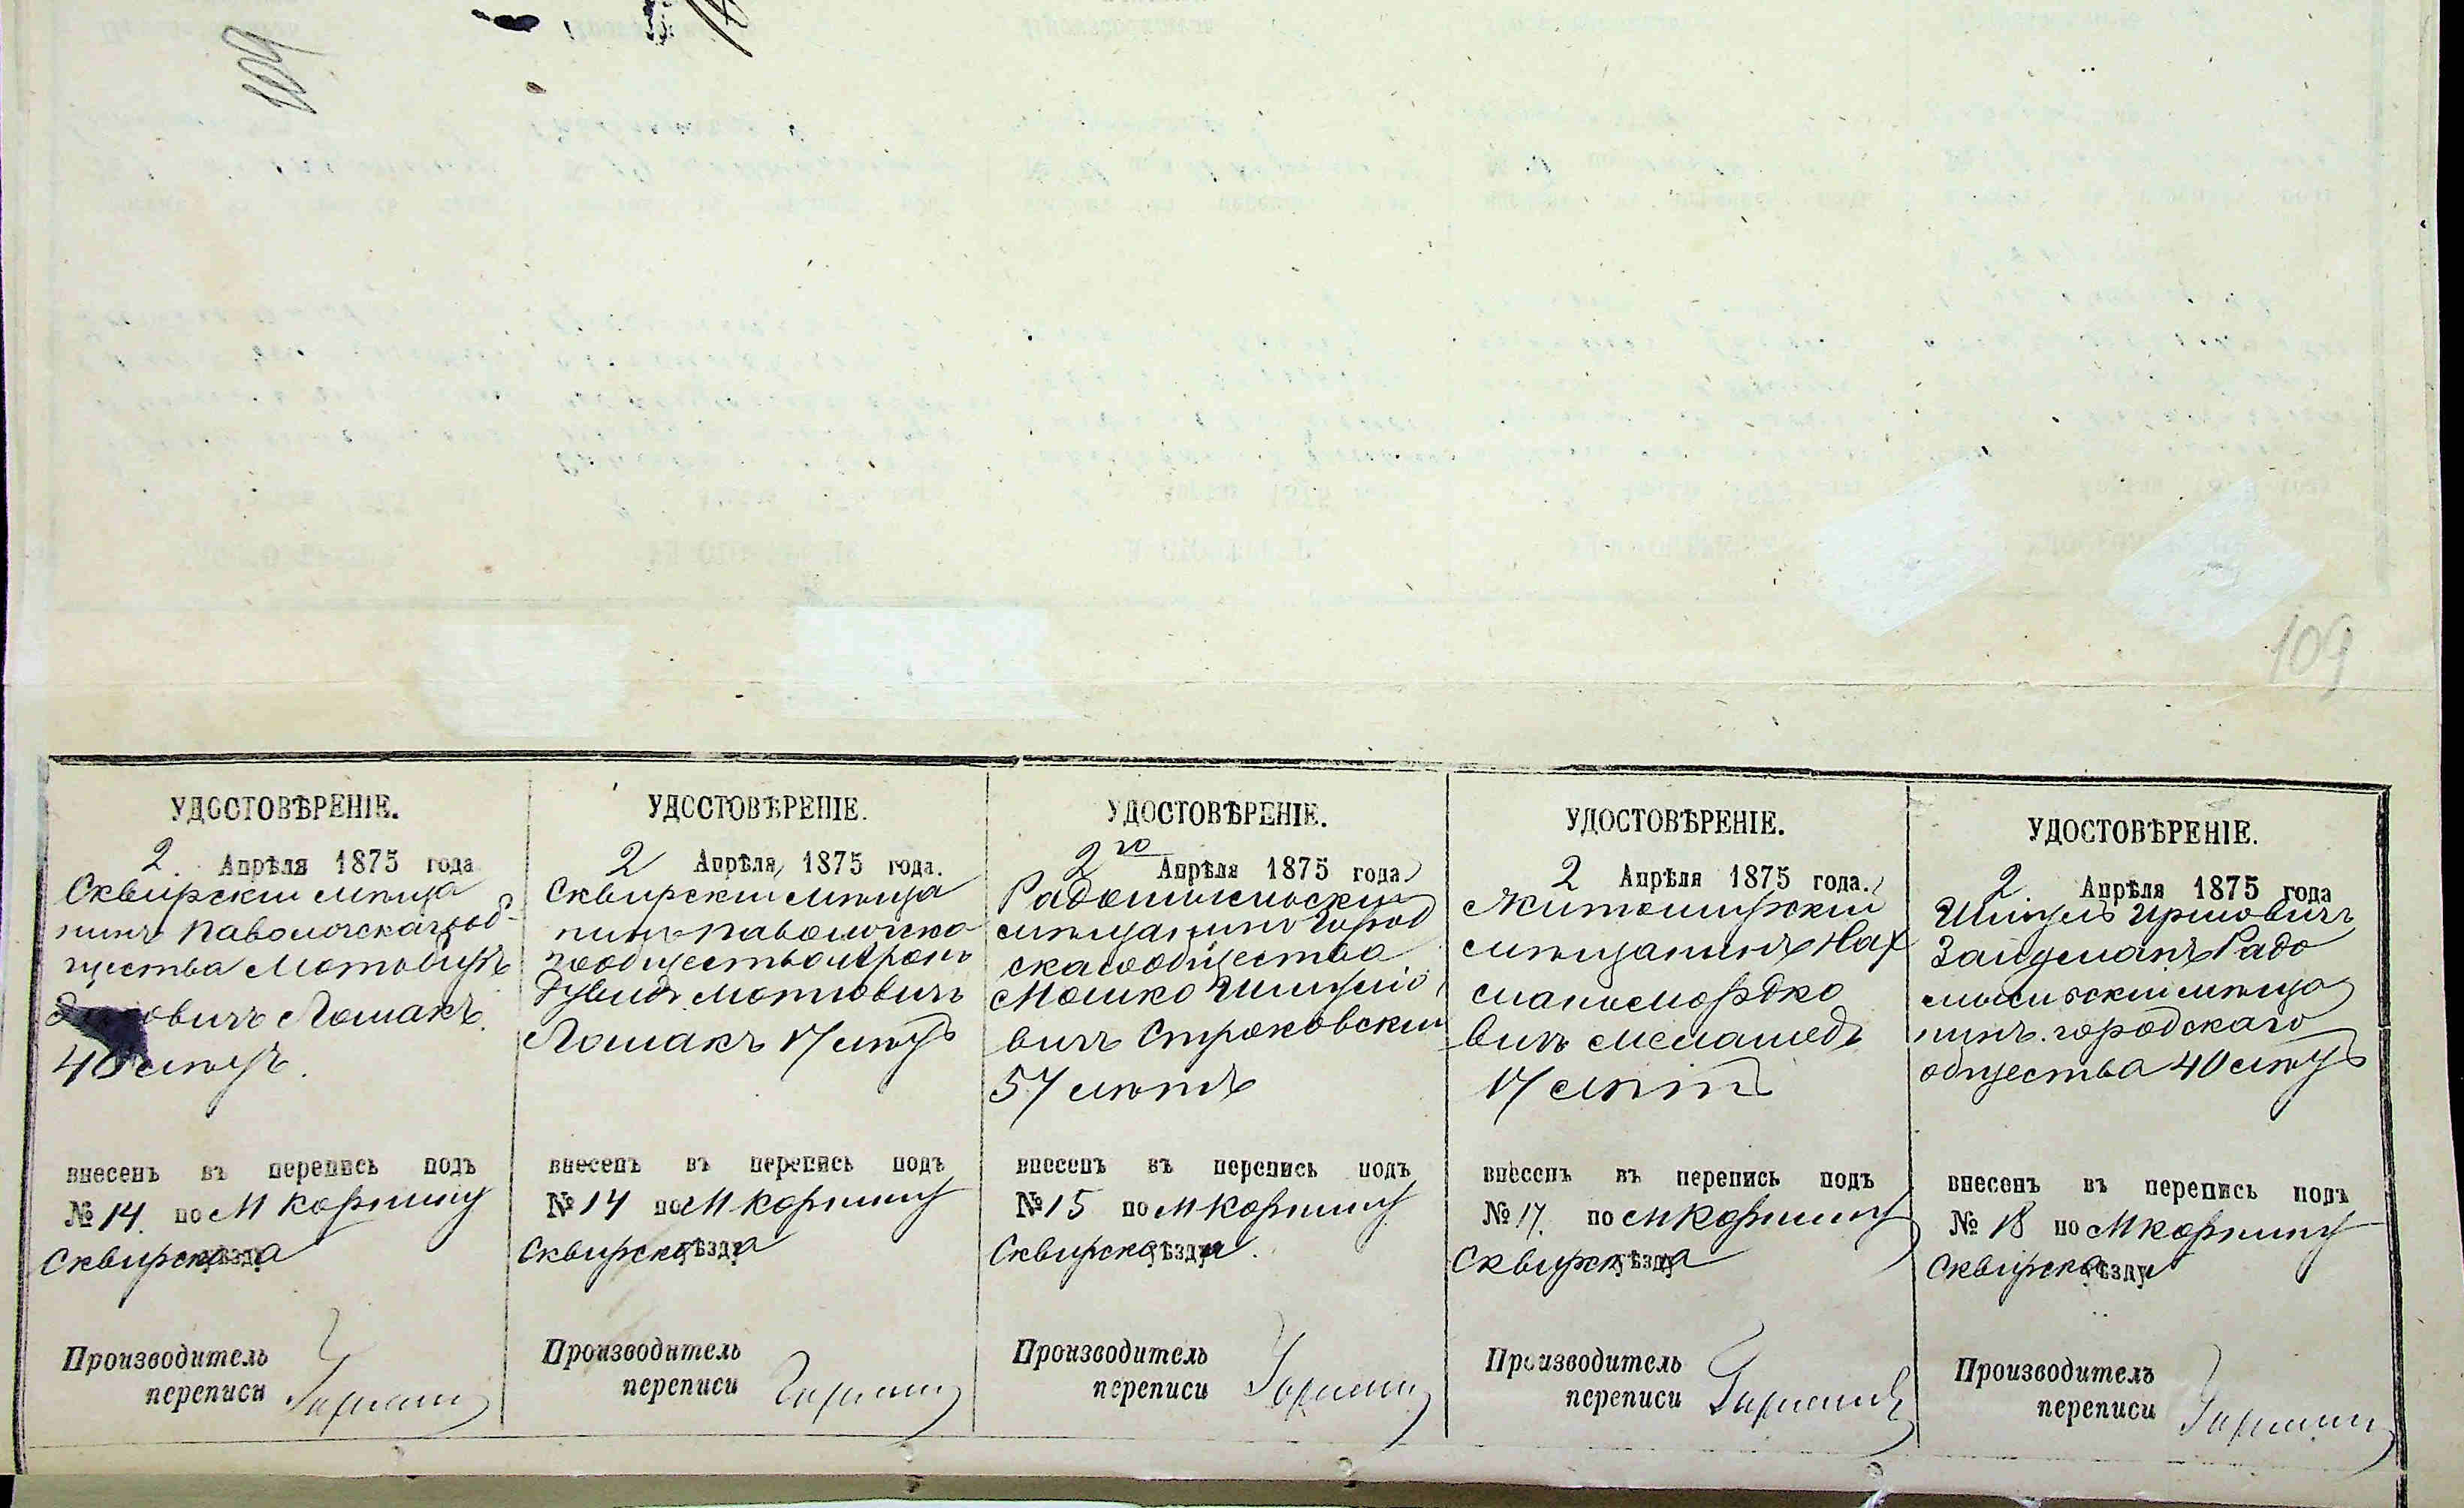 109
109
УДОСТОВѢРЕНІЕ.
2 Апрѣля 1875 года
Сквирскій мѣща
нинъ Паволочскаго об-
щества Мото
овичъ Лошакъ.
40 лѣтъ.
внесенъ въ перепись подъ
№ 14. по М Корнину
Сквирска уѣзду
Производитель
переписи
УДОСТОВѢРЕНІЕ.
2 Апрѣля 1875 года.
Сквирскій мѣща
нинъ Паволочска
го общества Аронъ
Дувидъ Мотовичъ
Лошакъ 17 лѣтъ
внесенъ въ перепись подъ
№ 14 по М Корнину
Сквирска уѣзду
Производитель
переписи
УДОСТОВѢРЕНІЕ.
2го Апрѣля 1875 года
Радомысльскій
мѣщанинъ город
скаго общества
Мошко
вичъ Строковскій
57 лѣтъ
внесенъ въ перепись подъ
№ 15 по М Корнину
Сквирска уѣзду.
Производитель
переписи
УДОСТОВѢРЕНІЕ.
2 Апрѣля 1875 года.
Житомирскій
мѣщанинъ Нах
манъ Мордко
вичъ Менашедъ
17 лѣтъ
внесенъ въ перепись подъ
№ 17. по М Корнину
Сквирска уѣзду
Производитель
переписи
УДОСТОВѢРЕНІЕ.
2 Апрѣля 1875 года
Шмуль Ирмовичъ
Зайдманъ Радо
мысльскій мѣща
нинъ городскаго
общества 40 лѣтъ
внесенъ въ перепись подъ
№ 18 по М Корнину
Сквирска уѣзду
Производитель
переписи